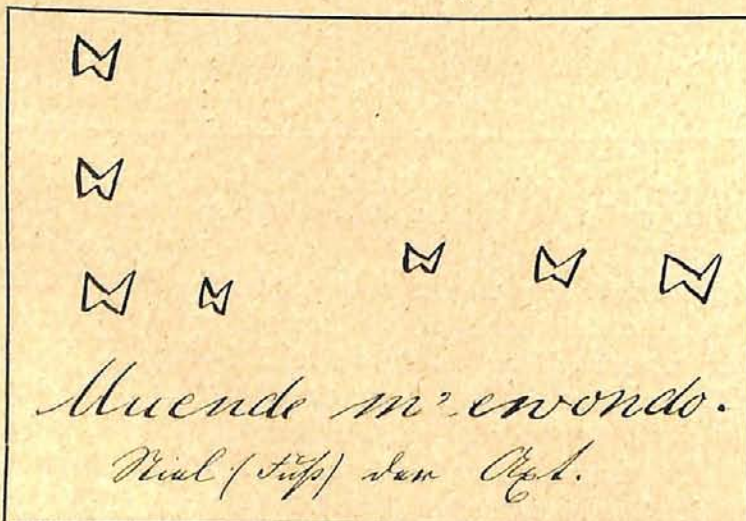 Muende m' ewondo.
Stiel (Fuß) der Axt.